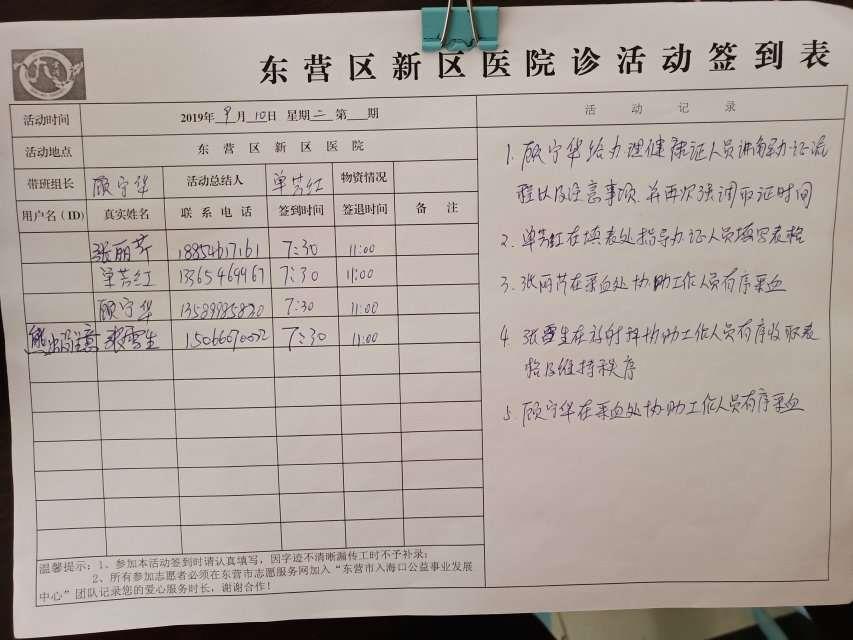 东营区新区医院诊活动签到表
活动时间 2019年 9月 10日 星期二 第 期
活动地点 东营区新区医院
带班组长 顾宁华 活动总结人 单芳红 物资情况
用户名(ID) 真实姓名 联系电话 签到时间 签退时间 备注
张丽芹 18854617161 7:30 11:00
单芳红 13365469967 7:30 11:00
顾宁华 13589985820 7:30 11:00
张雪生 15066070022 7:30 11:00
温馨提示：1、参加本活动签到时请认真填写，因字迹不清晰漏传工时不予补录；
2、所有参加志愿者必须在东营市志愿服务网加入“东营市入海口公益事业发展
中心”团队记录您的爱心服务时长，谢谢合作！
活动记录
1. 顾宁华给办理健康证人员讲解办证流
程以及注意事项.并再次强调取证时间
2、单芳红在填表处指导办证人员填写表格
3、张丽芹在采血处协助工作人员有序采血
4、张雪生在放射科协助工作人员有序收取表
格及维持秩序
5、顾宁华在采血处协助工作人员有序采血